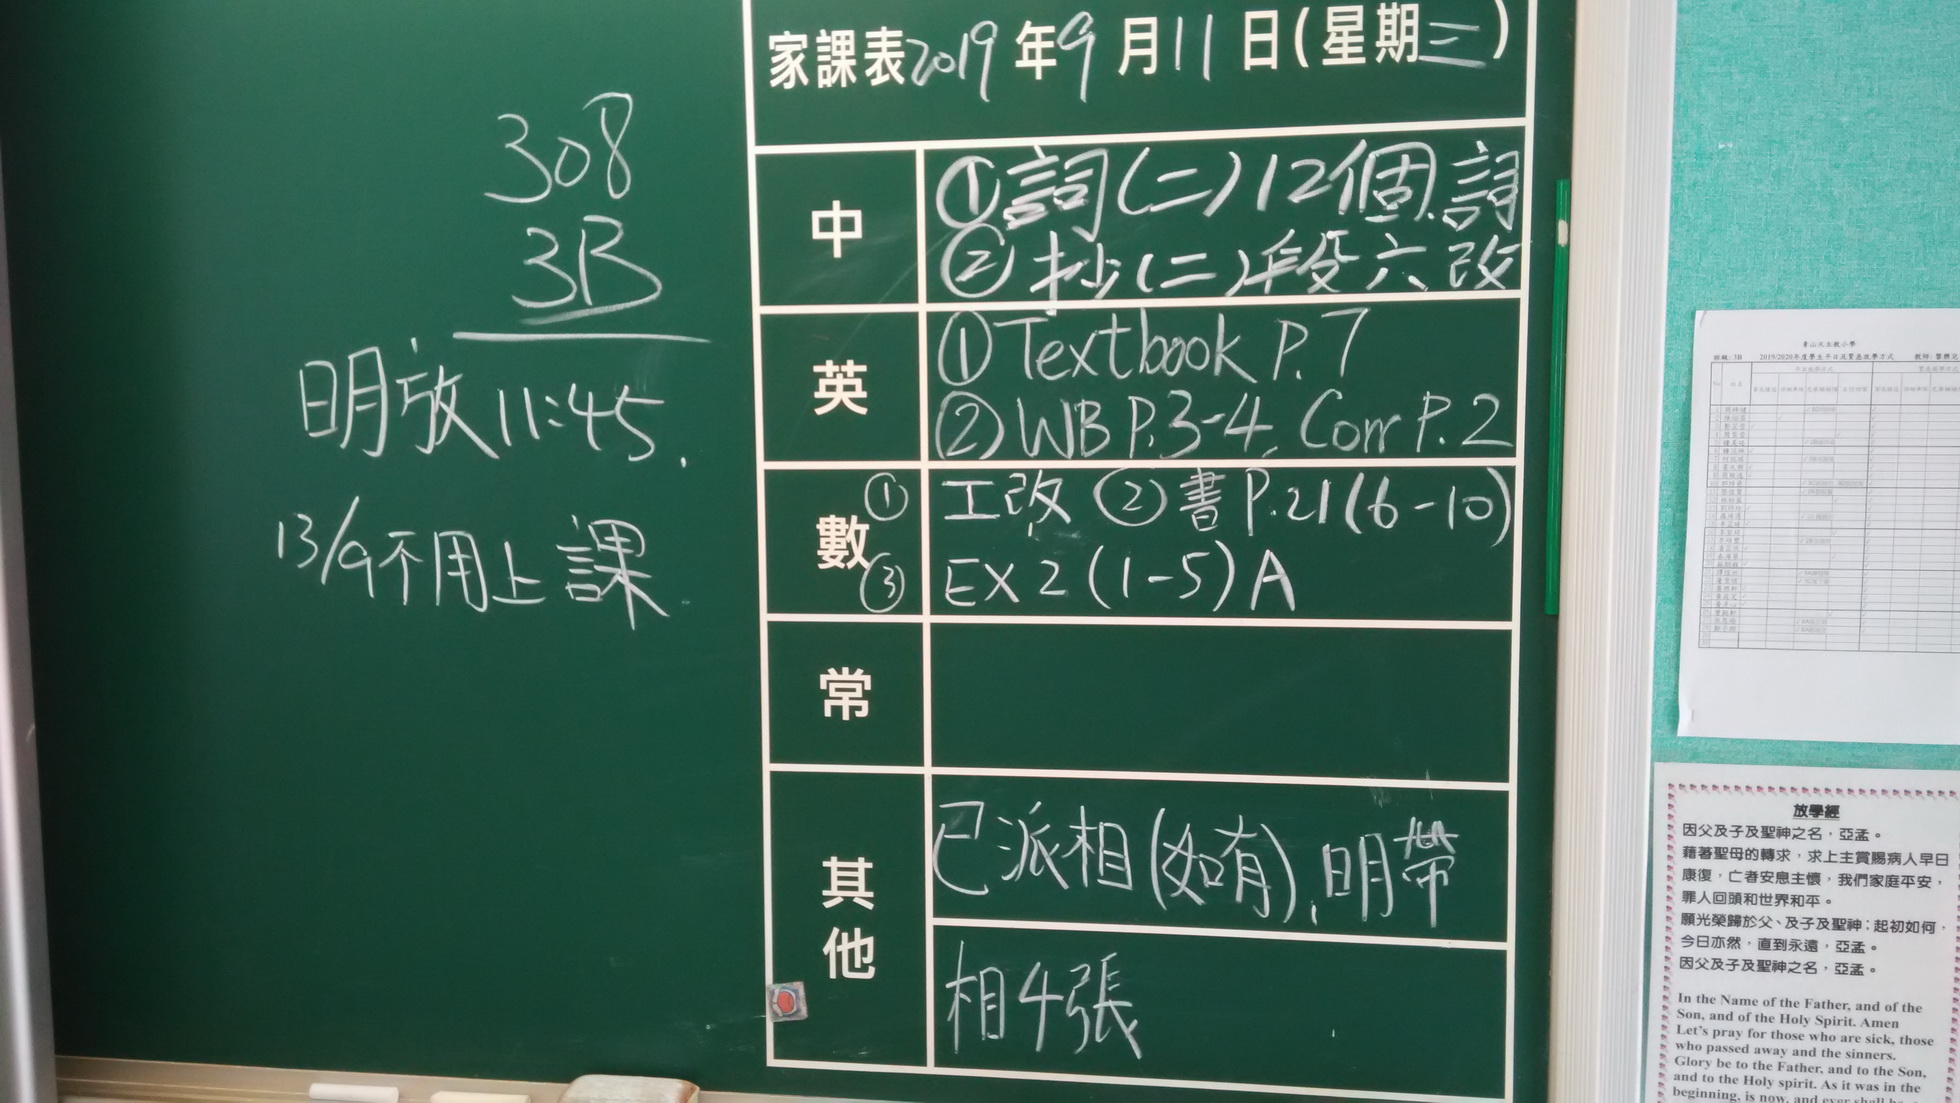 308
3B
明放11:45.
13/9不用上課
家課表2019年9月11日(星期三)
中
①詞(二)12個詞
②抄(二)段六改
英
①Textbook P.7
②WB P.3-4, Corr P.2
數
①工改 ②書P.21(6-10)
③EX 2 (1-5) A
常
其他
已派相(如有),明帶
相4張
青山天主教小學
班級: 3B 2019/2020年度學生平日及緊急放學方式
放學經
因父及子及聖神之名,亞孟。
藉著聖母的轉求,求上主賞賜病人早日
康復,亡者安息主懷,我們家庭平安,
罪人回頭和世界和平。
願光榮歸於父、及子及聖神;起初如何,
今日亦然,直到永遠,亞孟。
因父及子及聖神之名,亞孟。
In the Name of the Father, and of the
Son, and of the Holy Spirit. Amen
Let's pray for those who are sick, those
who passed away and the sinners.
Glory be to the Father, and to the Son,
and to the Holy spirit. As it was in the
beginning, is now, and ever shall